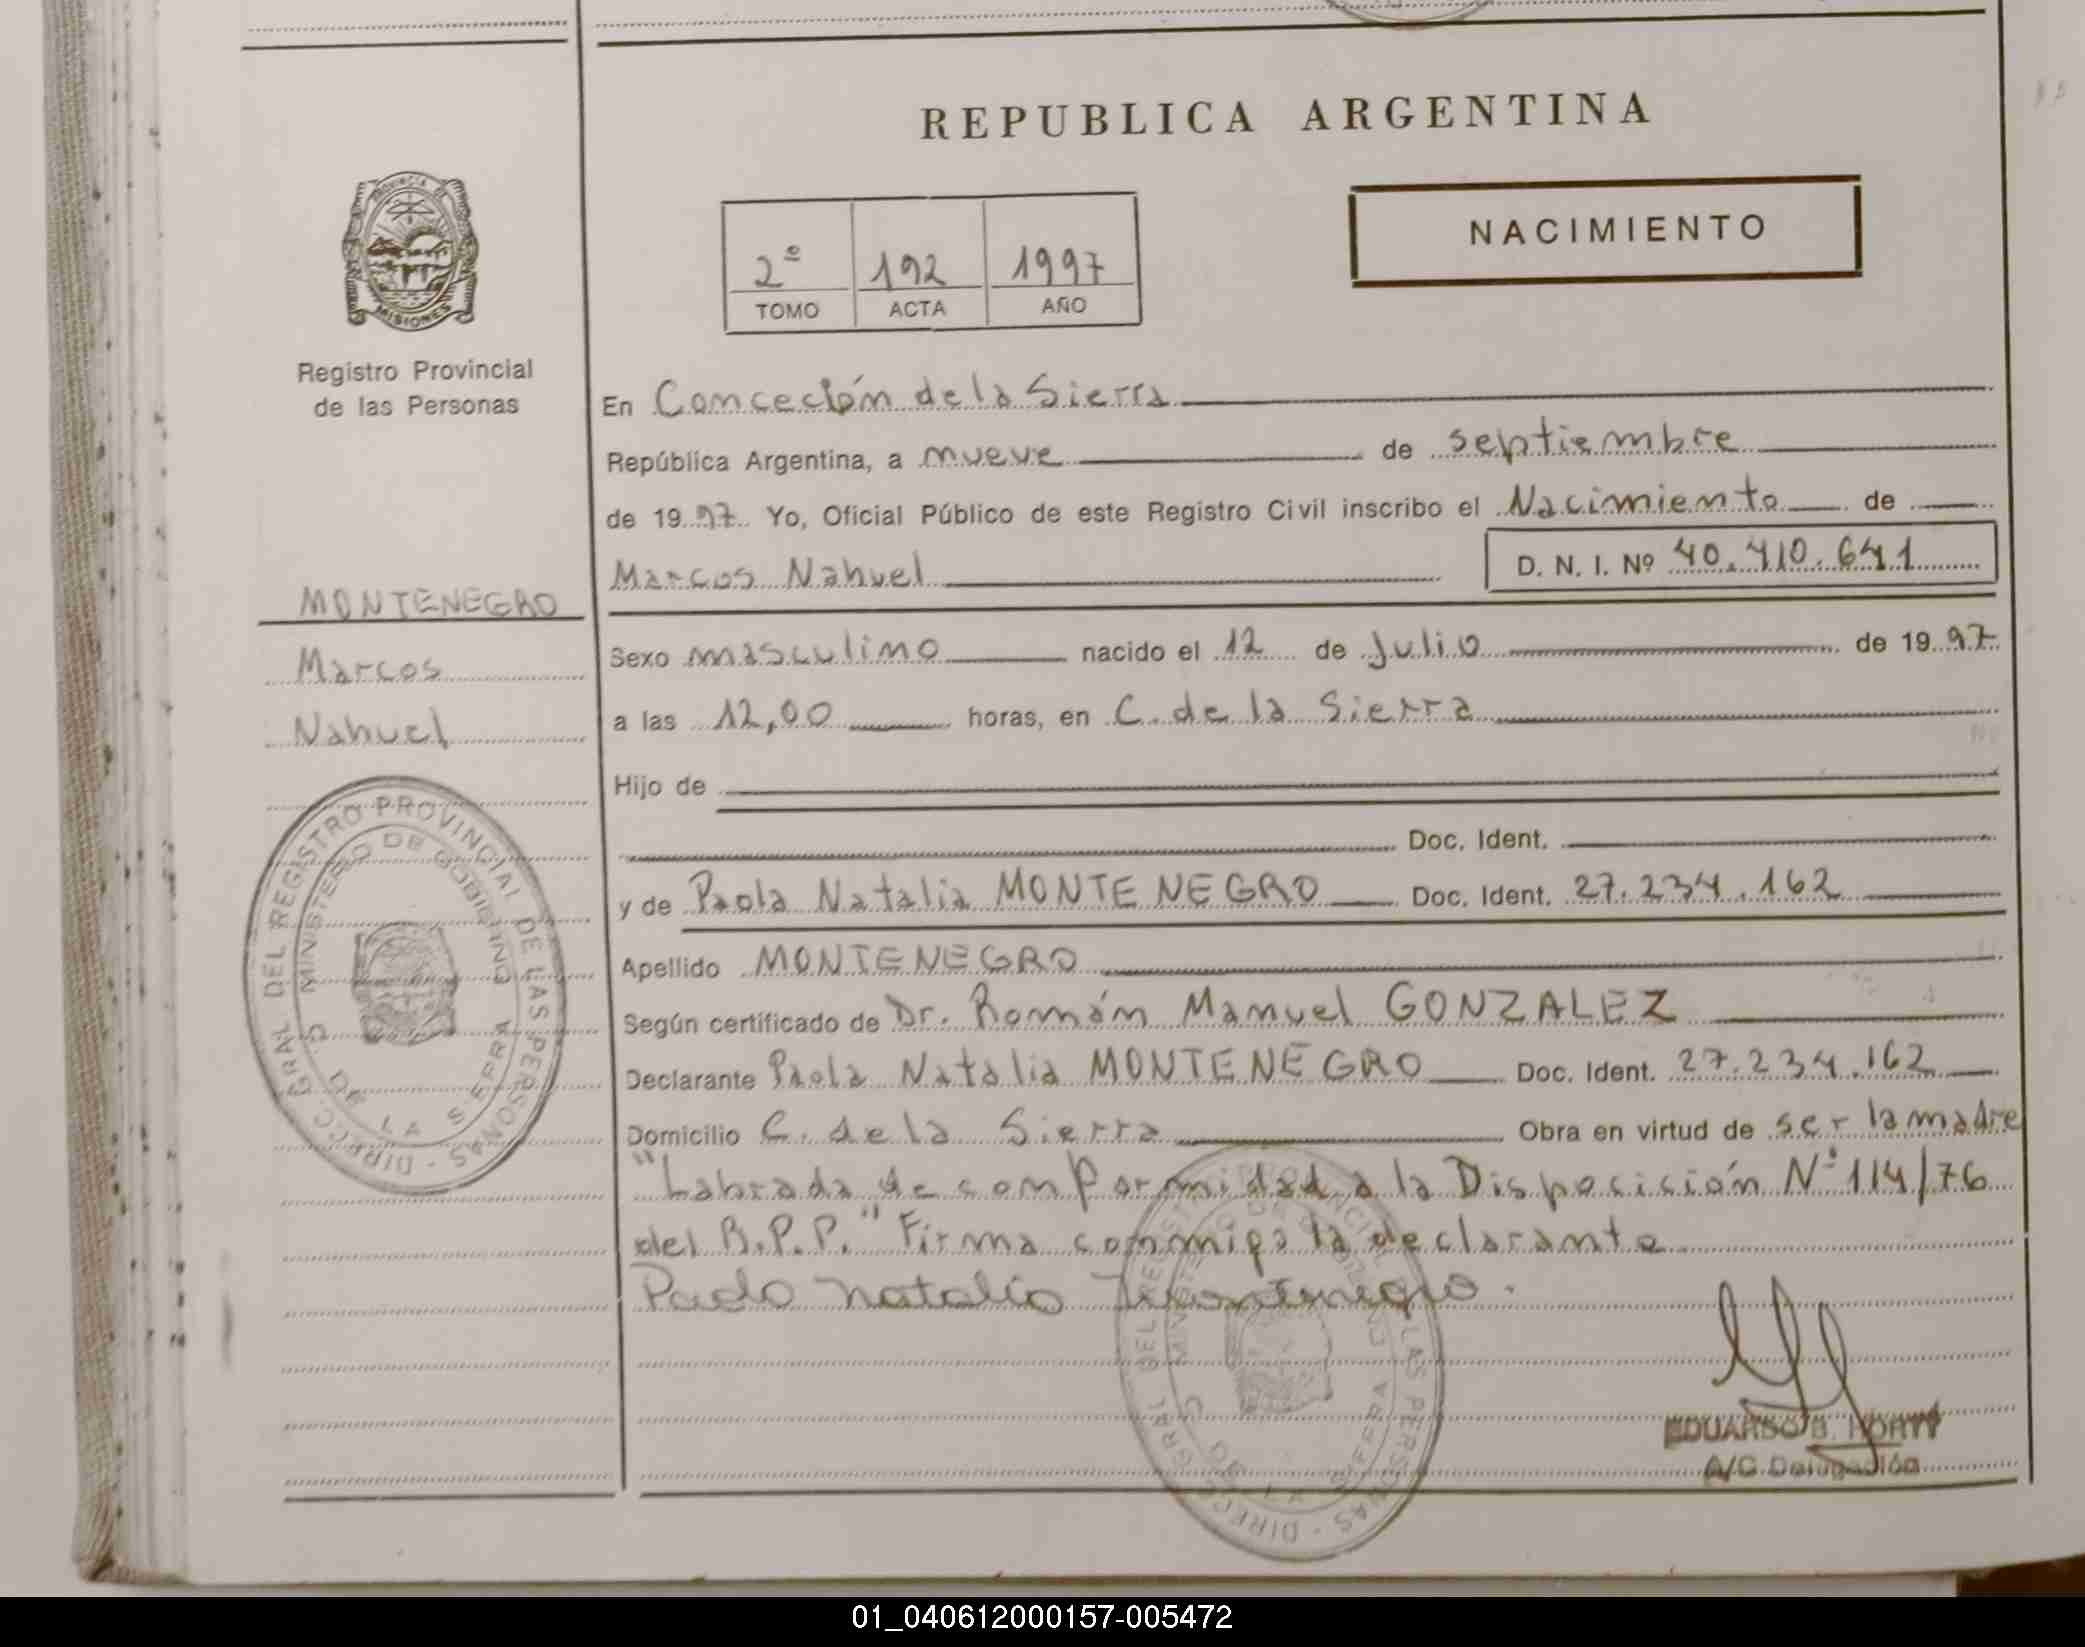 REPUBLICA ARGENTINA
NACIMIENTO
2º 192 1997
TOMO ACTA AÑO
PROVINCIA DE MISIONES
Registro Provincial
de las Personas
MONTENEGRO
Marcos
Nahuel
En Conceción de la Sierra
República Argentina, a nueve de septiembre
de 1997 Yo, Oficial Público de este Registro Civil inscribo el Nacimiento de
Marcos Nahuel D. N. I. Nº 40.410.641
Sexo masculino nacido el 12 de Julio de 1997
a las 12,00 horas, en C. de la Sierra
Hijo de
Doc. Ident.
y de Paola Natalia MONTENEGRO Doc. Ident. 27.234.162
Apellido MONTENEGRO
Según certificado de Dr. Román Manuel GONZALEZ
Declarante Paola Natalia MONTENEGRO Doc. Ident. 27.234.162
Domicilio C. de la Sierra Obra en virtud de ser la madre
"Labrada de conformidad a la Disposición Nº 114/76
del R.P.P." Firma conmigo la declarante
Paola Natalia Montenegro.
DIREC. GRAL. DEL REGISTRO PROVINCIAL DE LAS PERSONAS
MINISTERIO DE GOBIERNO
C. DE LA SIERRA
DIREC. GRAL. DEL REGISTRO PROVINCIAL DE LAS PERSONAS
MINISTERIO DE GOBIERNO
C. DE LA SIERRA
EDUARDO B.
A/C Delegación
01_040612000157-005472